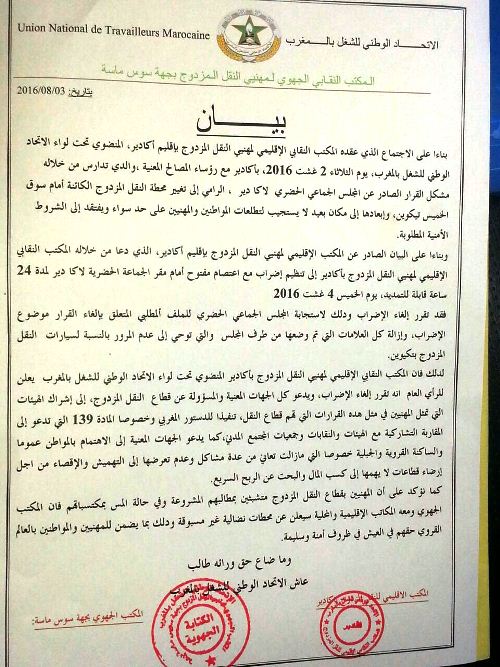 Union National de Travailleurs Marocaine
الاتحاد الوطني للشغل بالمغرب
المكتب النقابي الجهوي لمهنيي النقل المزدوج بجهة سوس ماسة
بتاريخ: 2016/08/03
بيان
بناءا على الاجتماع الذي عقده المكتب النقابي الإقليمي لمهنيي النقل المزدوج بإقليم أكادير، المنضوي تحت لواء الاتحاد
الوطني للشغل بالمغرب، يوم الثلاثاء 2 غشت 2016، بأكادير مع رؤساء المصالح المعنية ،والذي تدارس من خلاله
مشكل القرار الصادر عن المجلس الجماعي الحضري لاكادير ، الرامي إلى تغيير محطة النقل المزدوج الكائنة أمام سوق
الخميس تيكوين، وإبعادها إلى مكان بعيد لا يستجيب لتطلعات المواطنين والمهنيين على حد سواء ويفتقد إلى الشروط
الأمنية المطلوبة.
وبناءا على البيان الصادر عن المكتب الإقليمي لمهنيي النقل المزدوج بإقليم أكادير، الذي دعا من خلاله المكتب النقابي
الإقليمي لمهنيي النقل المزدوج بأكادير إلى تنظيم إضراب مع اعتصام مفتوح أمام مقر الجماعة الحضرية لاكادير لمدة 24
ساعة قابلة للتمديد، يوم الخميس 4 غشت 2016
فقد تقرر إلغاء الإضراب وذلك لاستجابة المجلس الجماعي الحضري للملف المطلبي المتعلق بإلغاء القرار موضوع
الإضراب، وإزالة كل العلامات التي تم وضعها من طرف المجلس والتي توحي إلى عدم المرور بالنسبة لسيارات النقل
المزدوج بتكيوين.
لذلك فان المكتب النقابي الإقليمي لمهنيي النقل المزدوج بأكادير المنضوي تحت لواء الاتحاد الوطني للشغل بالمغرب يعلن
للرأي العام انه تقرر إلغاء الإضراب، ويدعو كل الجهات المعنية والمسؤولة عن قطاع النقل المزدوج، إلى إشراك الهيئات
التي تمثل المهنيين في مثل هذه القرارات التي تهم قطاع النقل، تنفيذا للدستور المغربي وخصوصا المادة 139 التي تدعو إلى
المقاربة التشاركية مع الهيئات والنقابات وجمعيات المجتمع المدني،كما يدعو الجهات المعنية إلى الاهتمام بالمواطن عموما
والساكنة القروية والجبلية خصوصا التي مازالت تعاني من عدة مشاكل وعدم تعرضها إلى التهميش والإقصاء من اجل
إرضاء قطاعات لا يهمها إلى كسب المال والبحث عن الربح السريع.
كما نؤكد على أن المهنيين بقطاع النقل المزدوج متشبثين بمطالبهم المشروعة وفي حالة المس بمكتسباتهم فان المكتب
الجهوي ومعه المكاتب الإقليمية والمحلية سيعلن عن محطات نضالية غير مسبوقة وذلك بما يضمن للمهنيين والمواطنين بالعالم
القروي حقهم في العيش في ظروف آمنة وسليمة.
وما ضاع حق ورائه طالب
عاش الاتحاد الوطني للشغل بالمغرب
المكتب الاقليمي
المكتب الجهوي بجهة سوس ماسة:
الكتابة
الجهوية